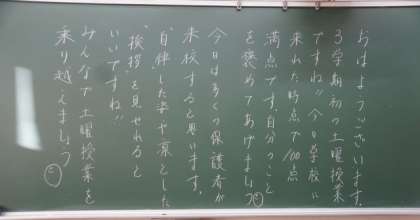 おはようございます。
3学期初の土曜授業
ですね!!今日学校に
来れた時点で100点
満点です。自分のこと
を褒めてあげましょう
今日は多くの保護者が
来校すると思います。
"自律"した姿や凛とした
"挨拶"を見せれると
いいですね!!
みんなで土曜授業を
乗り越えましょう